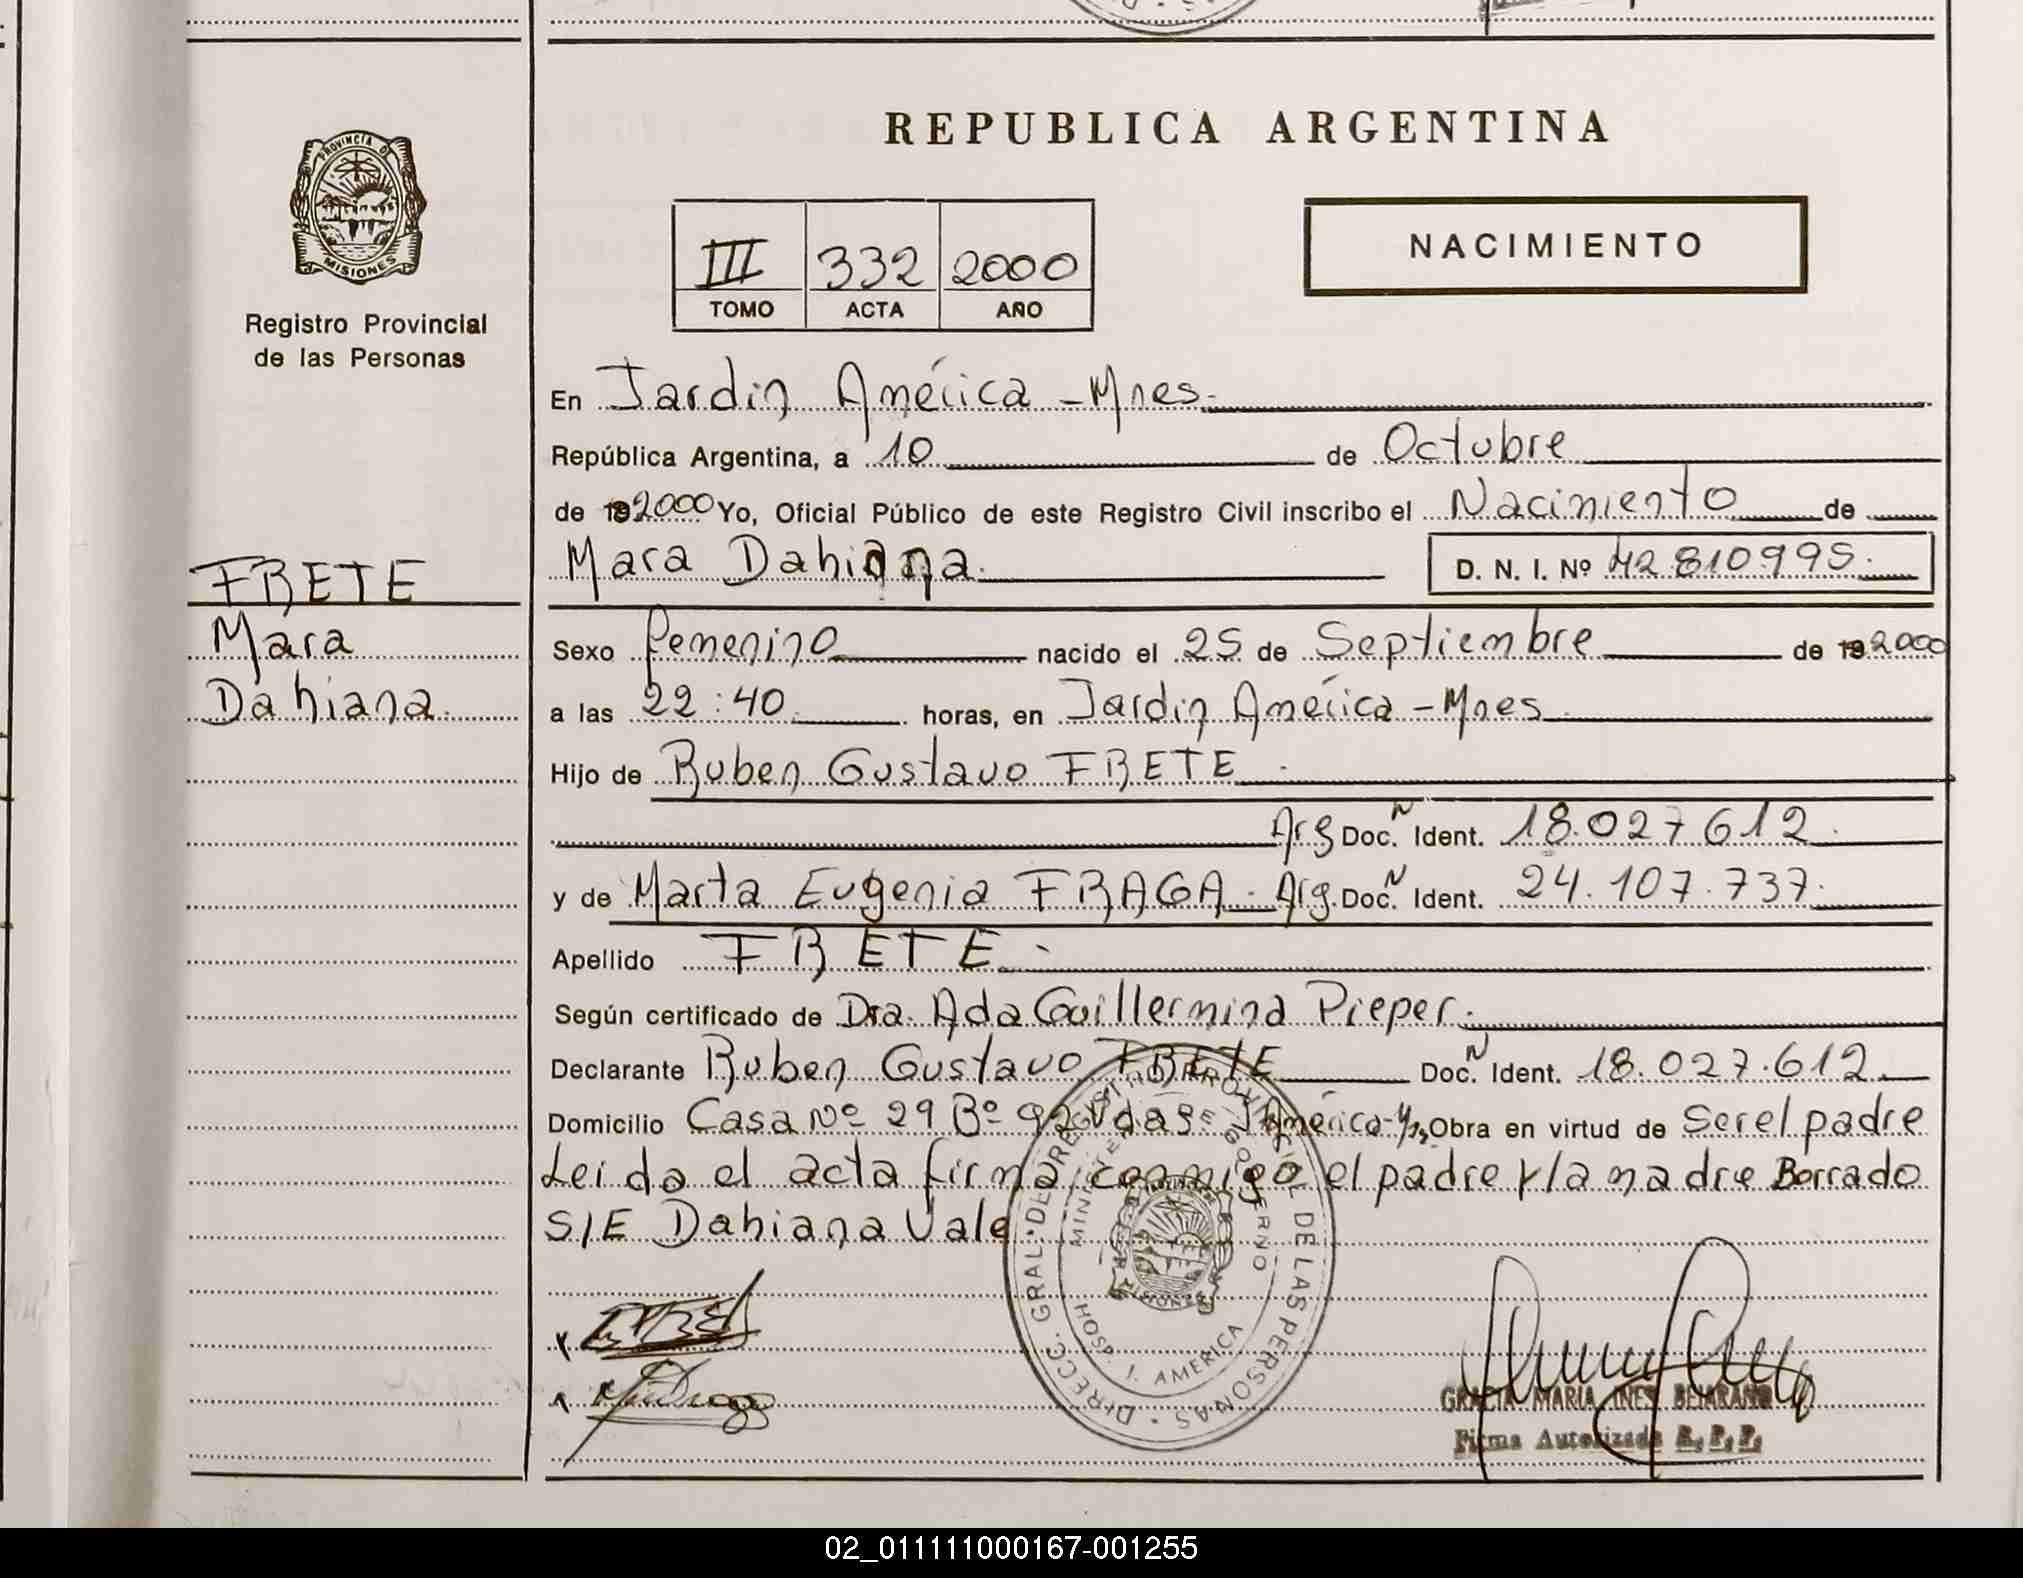 REPUBLICA ARGENTINA
PROVINCIA DE MISIONES
Registro Provincial
de las Personas
III 332 2000
TOMO ACTA AÑO
NACIMIENTO
En Jardin América - Mnes.
República Argentina, a 10 de Octubre
de 192000 Yo, Oficial Público de este Registro Civil inscribo el Nacimiento de
Mara Dahiana. D. N. I. Nº 42.810.995.
FRETE
Mara
Dahiana.
Sexo femenino nacido el 25 de Septiembre de 192000
a las 22:40 horas, en Jardin América - Mnes
Hijo de Ruben Gustavo FRETE.
Arg Doc. N Ident. 18.027.612.
y de Marta Eugenia FRAGA. Arg. Doc. N Ident. 24.107.737.
Apellido FRETE.
Según certificado de Dra. Ada Guillermina Pieper.
Declarante Ruben Gustavo FRETE Doc. N Ident. 18.027.612.
Domicilio Casa Nº 29 Bº 92 Vdas. J. América Obra en virtud de Ser el padre
Leida el acta firma conmigo el padre y la madre Borrado
S/E Dahiana Vale
DIRECC. GRAL. DE REGISTRO PROVINCIAL DE LAS PERSONAS
GOBIERNO
HOSP. J. AMERICA
MISIONES
GRACIA MARIA INES BEJARANO
Firma Autorizada R. P. P.
02_011111000167-001255